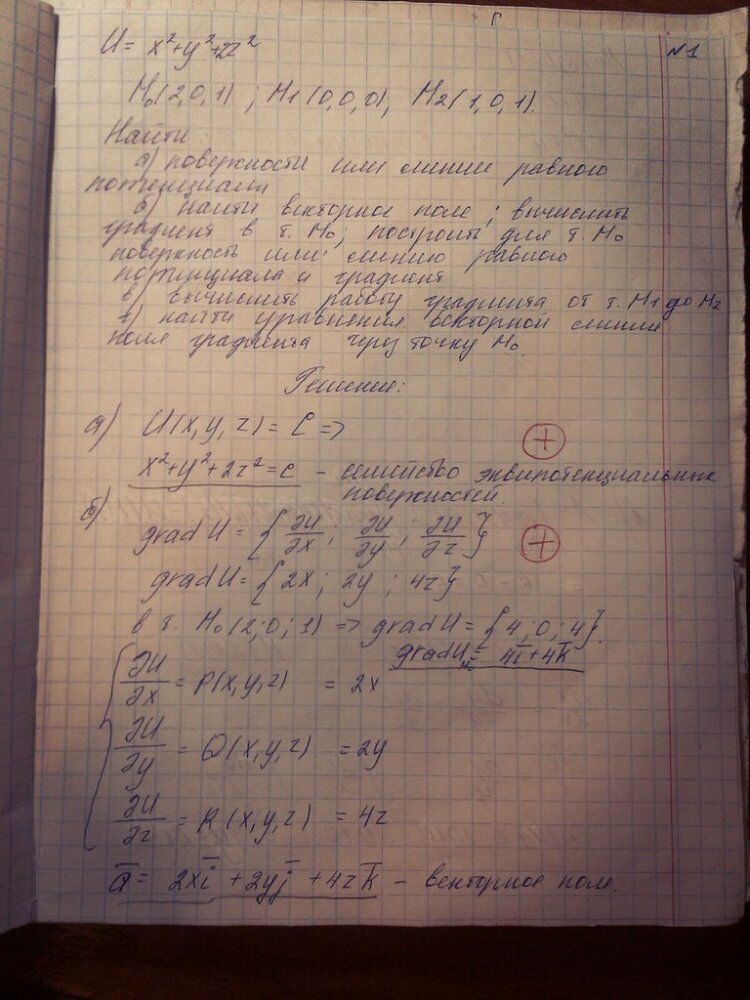 г
U = x²+y²+2z²
№1
M₀(2,0,1) ; M₁(0,0,0), M₂(1,0,1).
Найти
а) поверхности или линии равного
потенциала
б) найти векторное поле; вычислить
градиент в т. M₀; построить для т. M₀
поверхность или линию равного
потенциала и градиент
в) вычислить работу градиента от т. M₁ до M₂
г) найти уравнения векторной линии
поля градиента через точку M₀.
Решение:
а) U(x,y,z) = C =>
+
x²+y²+2z²=c – семейство эквипотенциальных
поверхностей
б)
grad U = {∂U/∂x ; ∂U/∂y ; ∂U/∂z}
+
grad U = {2x; 2y ; 4z}
в т. M₀(2;0;1) => grad U = {4;0;4}.
grad U M₀ = 4i̅+4k̅
∂U/∂x = P(x,y,z) = 2x
∂U/∂y = Q(x,y,z) = 2y
∂U/∂z = R(x,y,z) = 4z
a̅ = 2xi̅ + 2yj̅ + 4zk̅ – векторное поле.